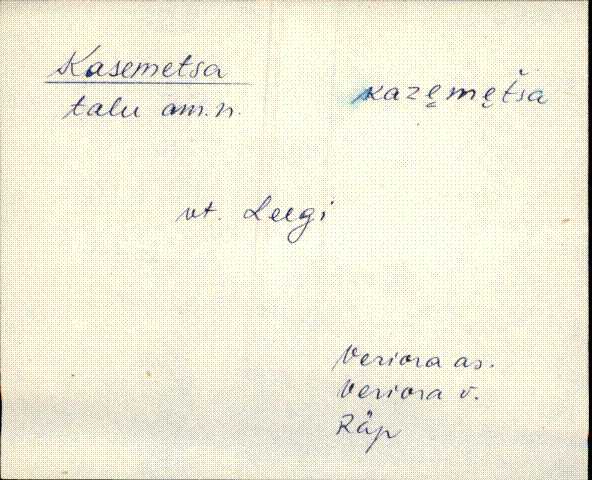 Kasemetsa
kazę̆mętša
talu am.n.
vt. Leegi
Veriora as.
Veriora v.
Räp